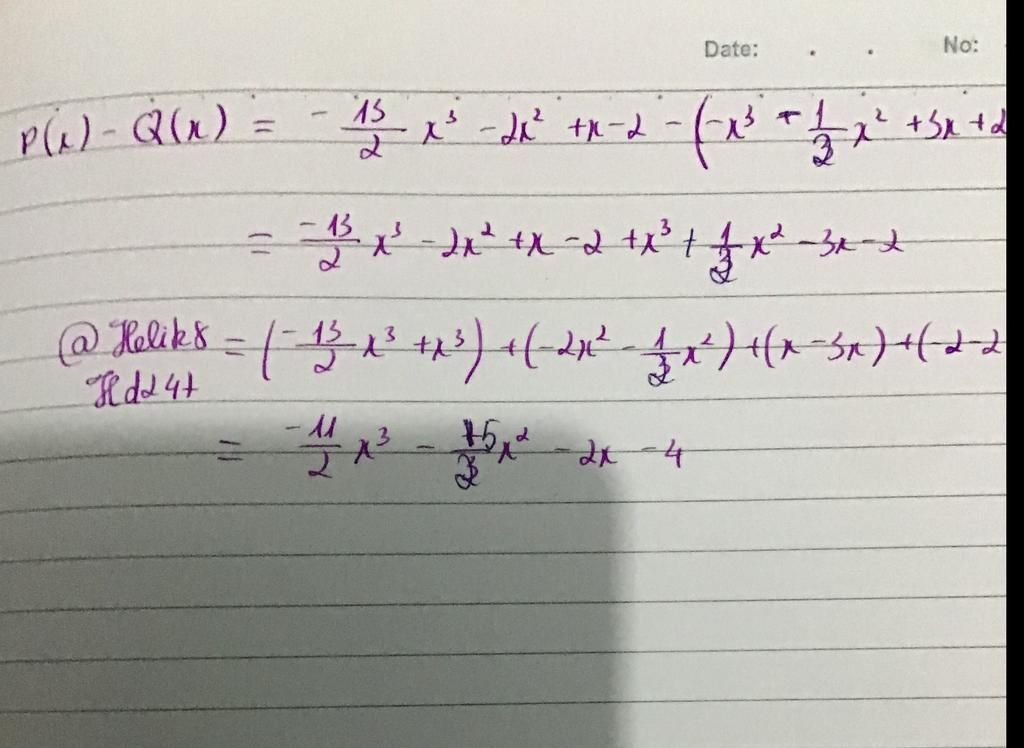 Date: . . No:
P(x) - Q(x) = - 13/2 x³ - 2x² + x - 2 - (-x³ - 1/2 x² + 3x + 2
= -13/2 x³ - 2x² + x - 2 + x³ + 1/2 x² - 3x - 2
@Helik8 = (-13/2 x³ + x³) + (-2x² - 1/2 x²) + (x - 3x) + (-2-2
Hd24t
= -11/2 x³ - 5/2 x² - 2x - 4